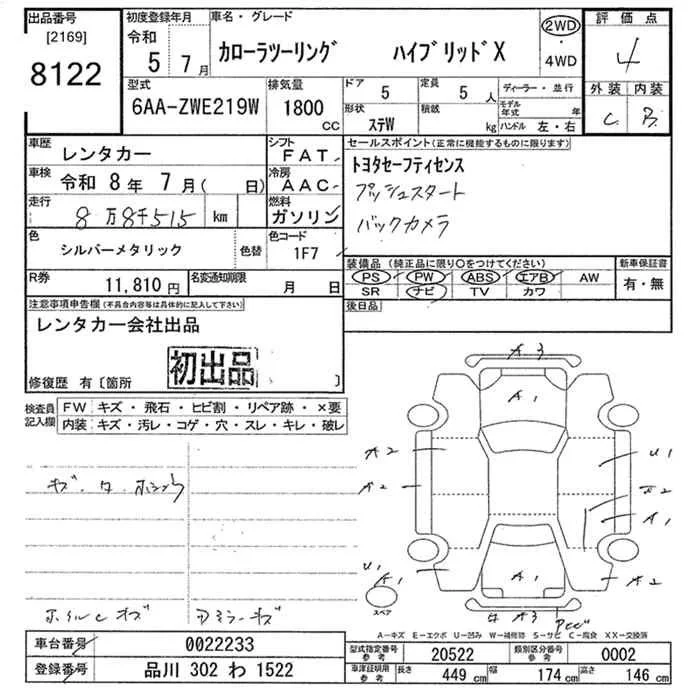 出品番号
[2169]
8122
初度登録年月
令和
5 7月
車名・グレード
カローラツーリング ハイブリッドX
2WD
・
4WD
評価点
4
外装 内装
C B
型式
6AA-ZWE219W
排気量
1800
CC
ドア 5
定員 5 人
形状 ステW
積載 kg
ディーラー・並行
モデル年式 年
ハンドル 左・右
車歴 レンタカー
車検 令和 8年 7月( 日)
走行 8万8千515 km
色 シルバーメタリック 色替
シフト FAT
冷房 AAC
燃料 ガソリン
色コード 1F7
セールスポイント(正常に機能するものに限ります)
トヨタセーフティセンス
プッシュスタート
バックカメラ
R券 11,810円
名変通知期限 月 日
装備品(純正品に限り○をつけてください)
PS PW ABS エアB AW
SR ナビ TV カワ
新車保証書
有・無
後日品
注意事項申告欄(不具合内容等は具体的に記入して下さい)
レンタカー会社出品
初出品
修復歴 有〔箇所 〕
検査員記入欄
FW キズ・飛石・ヒビ割・リペア跡・×要
内装 キズ・汚レ・コゲ・穴・スレ・キレ・破レ
A3
A1
A2
U1
A2
A1
U1
A1
A1
A2
A3
スペア
A-キズ E-エクボ U-凹み W-補修跡 S-サビ C-腐食 XX-交換済
車台番号 0022233
登録番号 品川 302 わ 1522
型式指定番号 参考 20522
類別区分番号 参考 0002
車庫証明用 参考
長さ 449 cm
幅 174 cm
高さ 146 cm